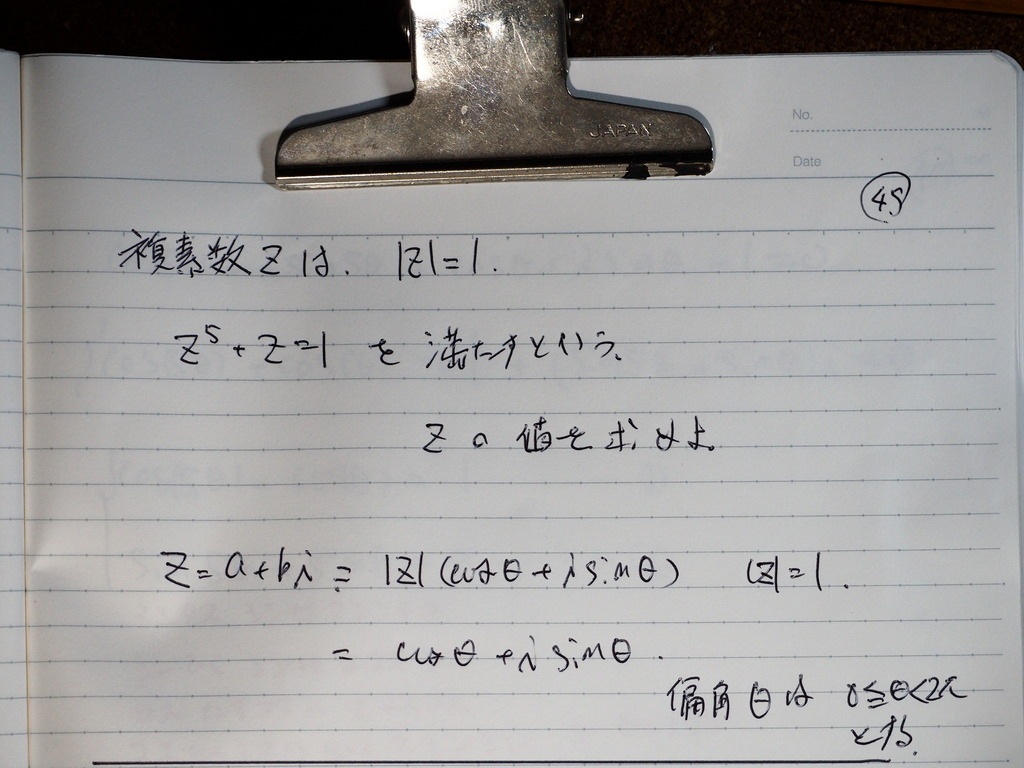 JAPAN
No.
Date
49
複素数 Z は、 |Z|=1.
Z⁵+Z=1 を満たすという。
Z の値を求めよ。
Z=a+bi=|Z|(cosθ+i sinθ) |Z|=1.
= cosθ+i sinθ.
偏角θは 0≦θ<2π
とする。